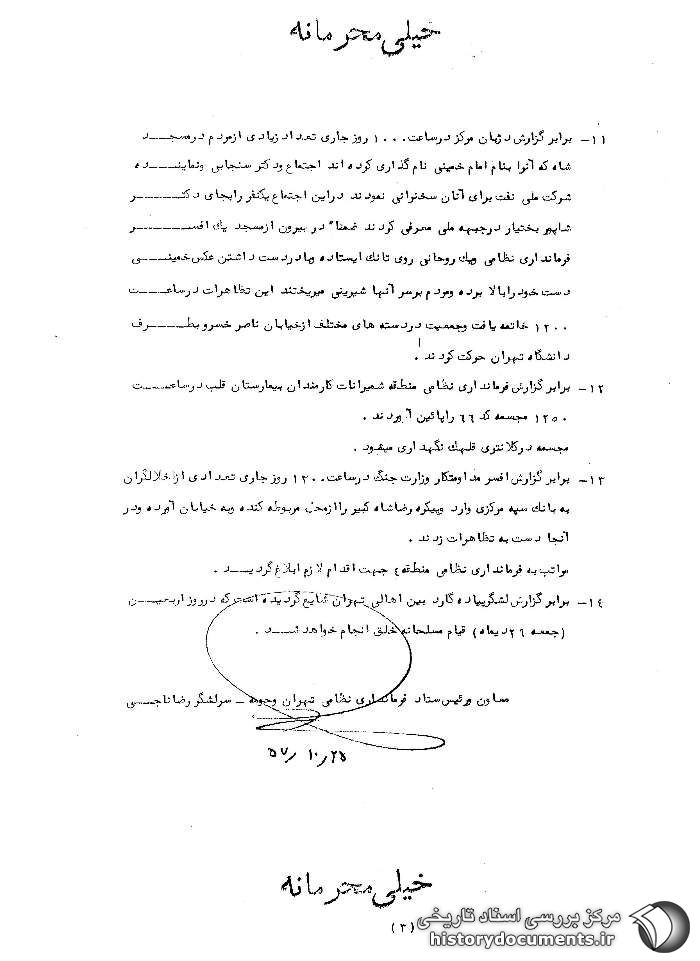 خیلی محرمانه
۱۱- برابر گزارش دژبان مرکز درساعت ۱۰۰۰ روز جاری تعداد زیادی ازمردم درمسجد
شاه که آنرا بنام امام خمینی نام گذاری کرده اند اجتماع ودکتر سنجابی ونماینده
شرکت ملی نفت برای آنان سخنرانی نمودند دراین اجتماع یکنفر رابجای دکتر
شاپور بختیار درجبهه ملی معرفی کردند ضمناً در بیرون ازمسجد یك افسر
فرمانداری نظامی ویك روحانی روی تانك ایستاده وبادردست داشتن عکس خمینی
دست خودرابالا برده ومردم برسر آنها شیرینی میریختند این تظاهرات درساعت
۱۲۰۰ خاتمه یافت وجمعیت دردسته های مختلف ازخیابان ناصر خسرو بطرف
دانشگاه تهران حرکت کردند .
۱۲- برابر گزارش فرمانداری نظامی منطقه شمیرانات کارمندان بیمارستان قلب درساعت
۱۲۵۰ مجسمه کد ۶۶ راپائین آوردند .
مجسمه درکلانتری قلهك نگهداری میشود .
۱۳- برابر گزارش افسر مداومتکار وزارت جنگ درساعت ۱۲۰۰ روز جاری تعدادی ازاخلالگران
به بانك سپه مرکزی وارد وپیکره رضاشاه کبیر راازمحل مربوطه کنده وبه خیابان آورده ودر
آنجا دست به تظاهرات زدند .
مراتب به فرمانداری نظامی منطقه ٤ جهت اقدام لازم ابلاغ گردید .
۱٤- برابر گزارش لشگرپیاده گارد بین اهالی تهران شایع گردیده است که درروز اربعین
(جمعه ۲۹ دیماه) قیام مسلحانه خلق انجام خواهد شد .
معاون ورئیس ستاد فرمانداری نظامی تهران وحومه - سرلشگر رضا ناجی
۵۷/۱۰/۲۵
خیلی محرمانه
(۳)
مرکز بررسی اسناد تاریخی
historydocuments.ir